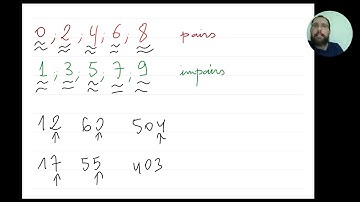 0, 2, 4, 6, 8 pairs
1, 3, 5, 7, 9 impairs
12 60 504
17 55 403